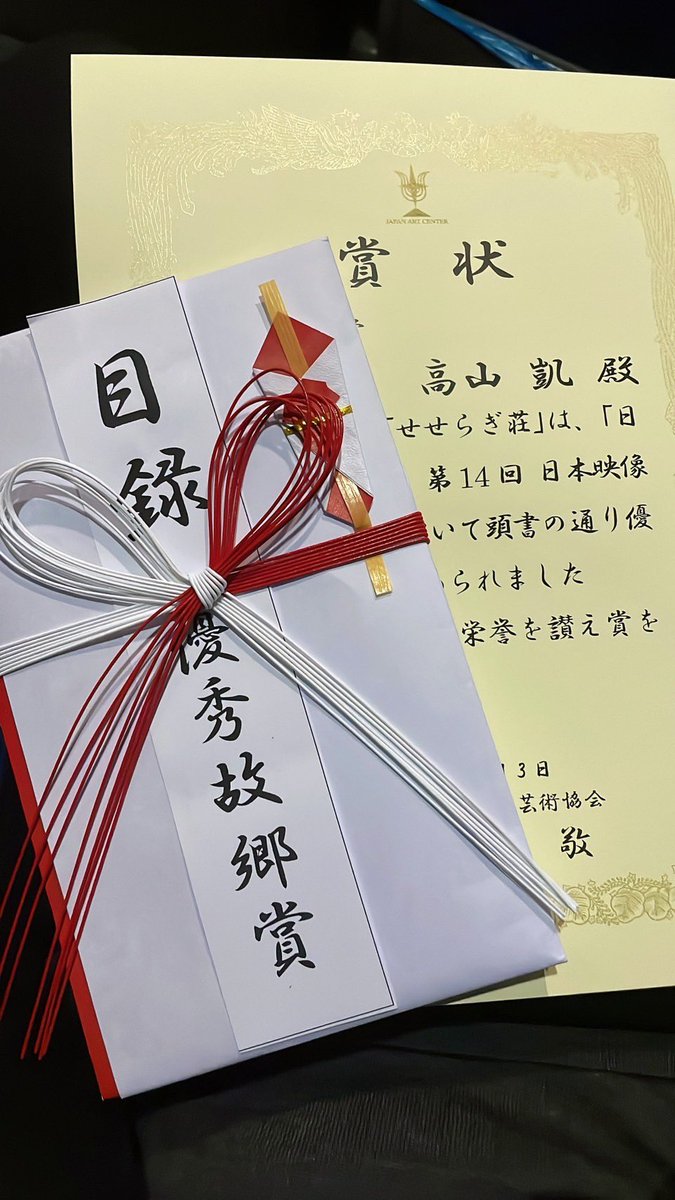 JAPAN ART CENTER
賞状
高山 凱 殿
「せせらぎ荘」は、「日
第14回 日本映像
いて頭書の通り優
られました
栄誉を讃え賞を
3日
芸術協会
敬
目録
優秀故郷賞